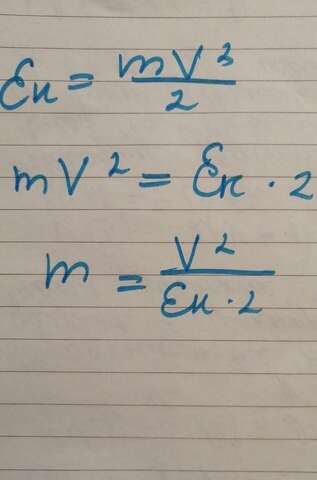 Eк = mV³/2
mV² = Eк · 2
m = V²/Eк · 2